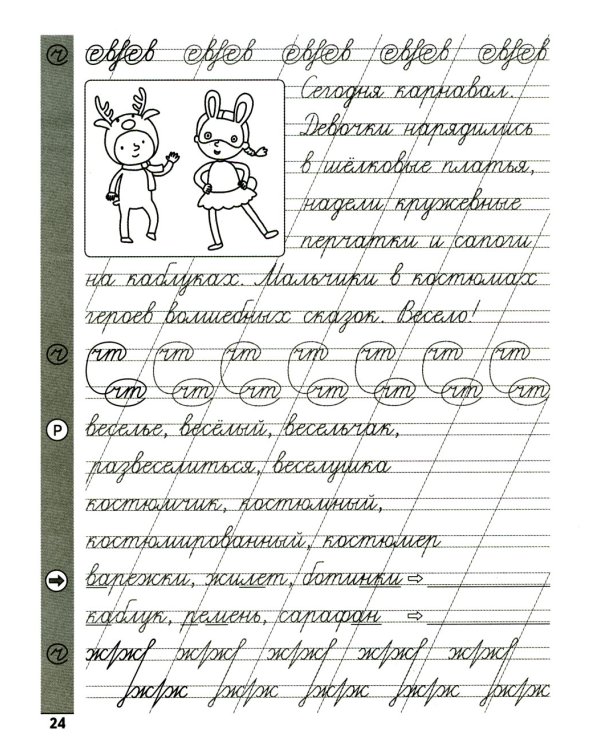 евfев евfев евfев евfев евfев
Сегодня карнавал.
Девочки нарядились
в шёлковые платья,
надели кружевные
перчатки и сапоги
на каблуках. Мальчики в костюмах
героев волшебных сказок. Весело!
чт чт чт чт чт чт чт
чт чт чт чт чт чт чт
Р веселье, весёлый, весельчак,
развеселиться, веселушка
костюмчик, костюмный,
костюмированный, костюмер
варежки, жилет, ботинки ⇨
каблук, ремень, сарафан ⇨
24